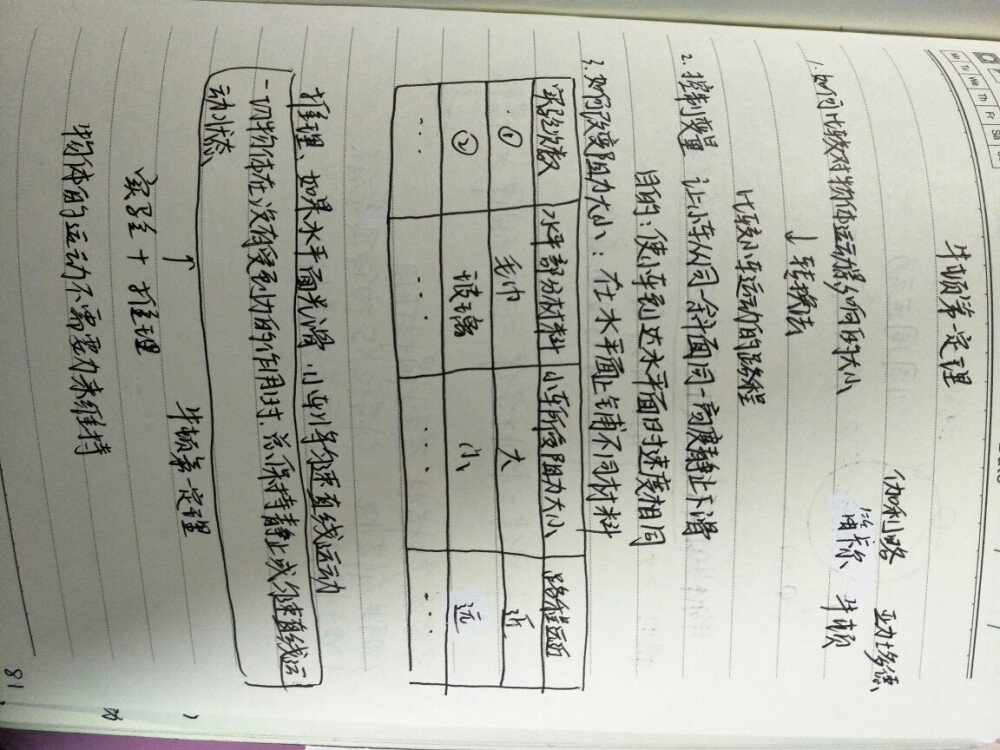 Mo Tu We Th Fr Sa
牛顿第一定理
伽利略 亚力士多德
笛卡尔 牛顿
1.如何比较对物体运动影响的大小
↓转换法
比较小车运动的路程
2.控制变量 让小车从同一斜面同一高度静止下滑
目的:使小车到达水平面时速度相同
3.如何改变阻力大小:在水平面上铺不同材料
实验次数 水平部分材料 小车所受阻力大小 路程远近
① 毛巾 大 近
② 玻璃 小 远
... ... ... ...
推理、如果水平面光滑,小车将匀速直线运动
一切物体在没有受到力的作用时,总保持静止或匀速直线运
动状态
↑ 牛顿第一定理
实验+推理
物体的运动不需要力来维持
81